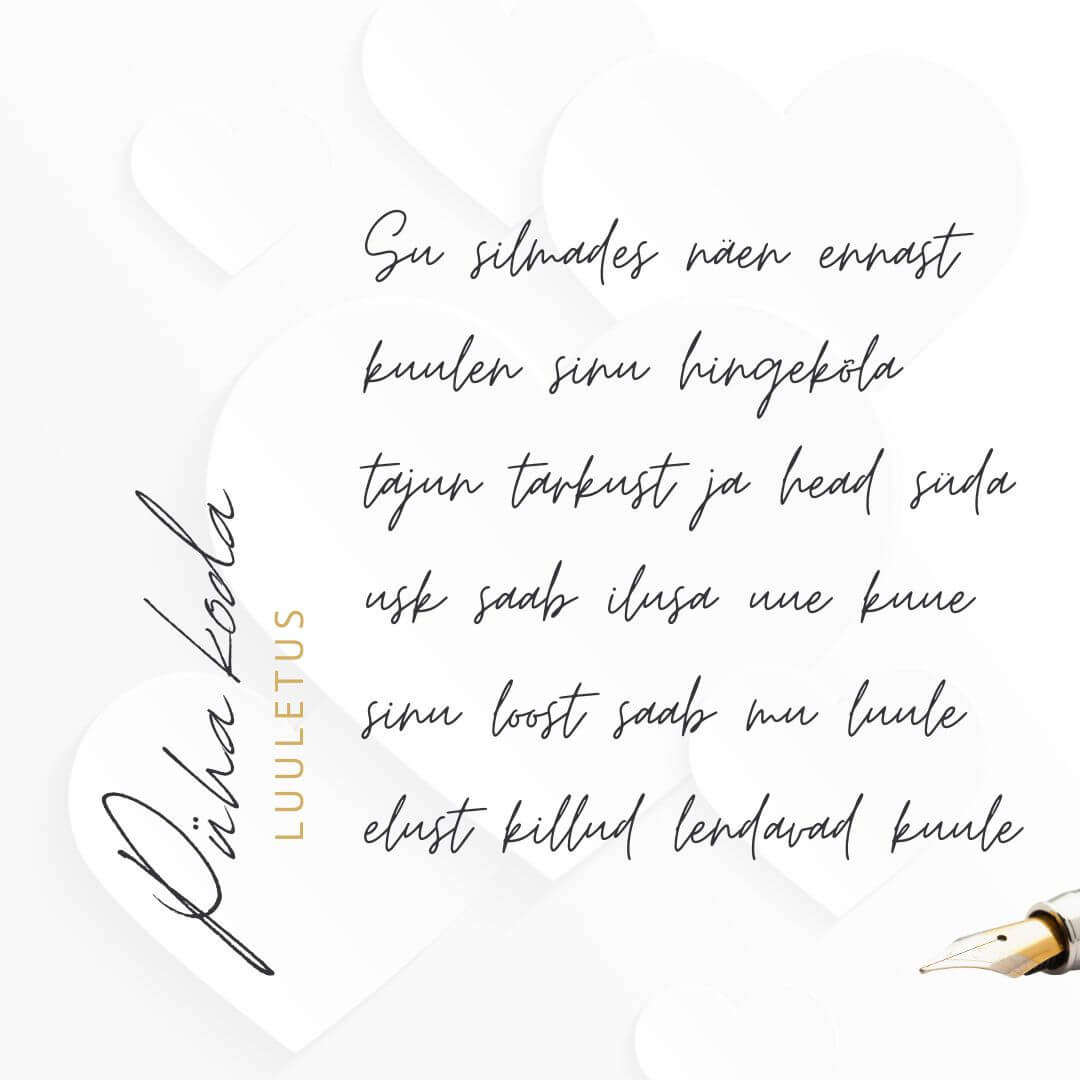 Su silmades näen ennast
kuulen sinu hingekõla
tajun tarkust ja head süda
usk saab ilusa uue kuue
sinu loost saab mu luule
elust killud lendavad kuule
Püha koda
LUULETUS